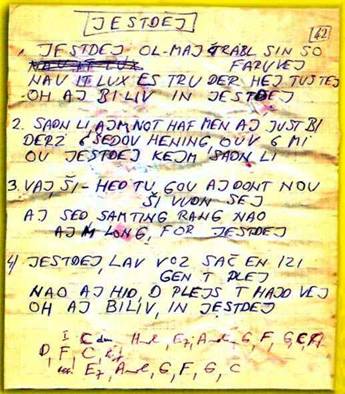 JESTDEJ
62
1. JESTDEJ OL-MAJ TRABL SIN SO
FARUVEJ
NAU IT LUX ES TRU DER HEJ TUSTEJ
-OH AJ BILIV IN JESTDEJ
2. SADN LI, AJM NOT HAF MEN AJ JUST BI
DERZ E ŠEDOU HENING, OUV E MI
OU JESTDEJ KEJM SADN LI
3. VAJ, ŠI - HED TU, GOU AJ DONT NOU
ŠI VUDN SEJ
AJ SED SAMTING RANG NAO
AJ M LONG, FOR JESTDEJ
4) JESTDEJ, LAV VOZ SAČ EN IZI
GEN T PLEJ
NAO AJ HID, D PLEJS T HAJD VEJ
OH AJ BILIV, IN JESTDEJ
I. C dur, E7, Amol, G, F, G, C
D, F, C
E7, Amol, G, F, G, C